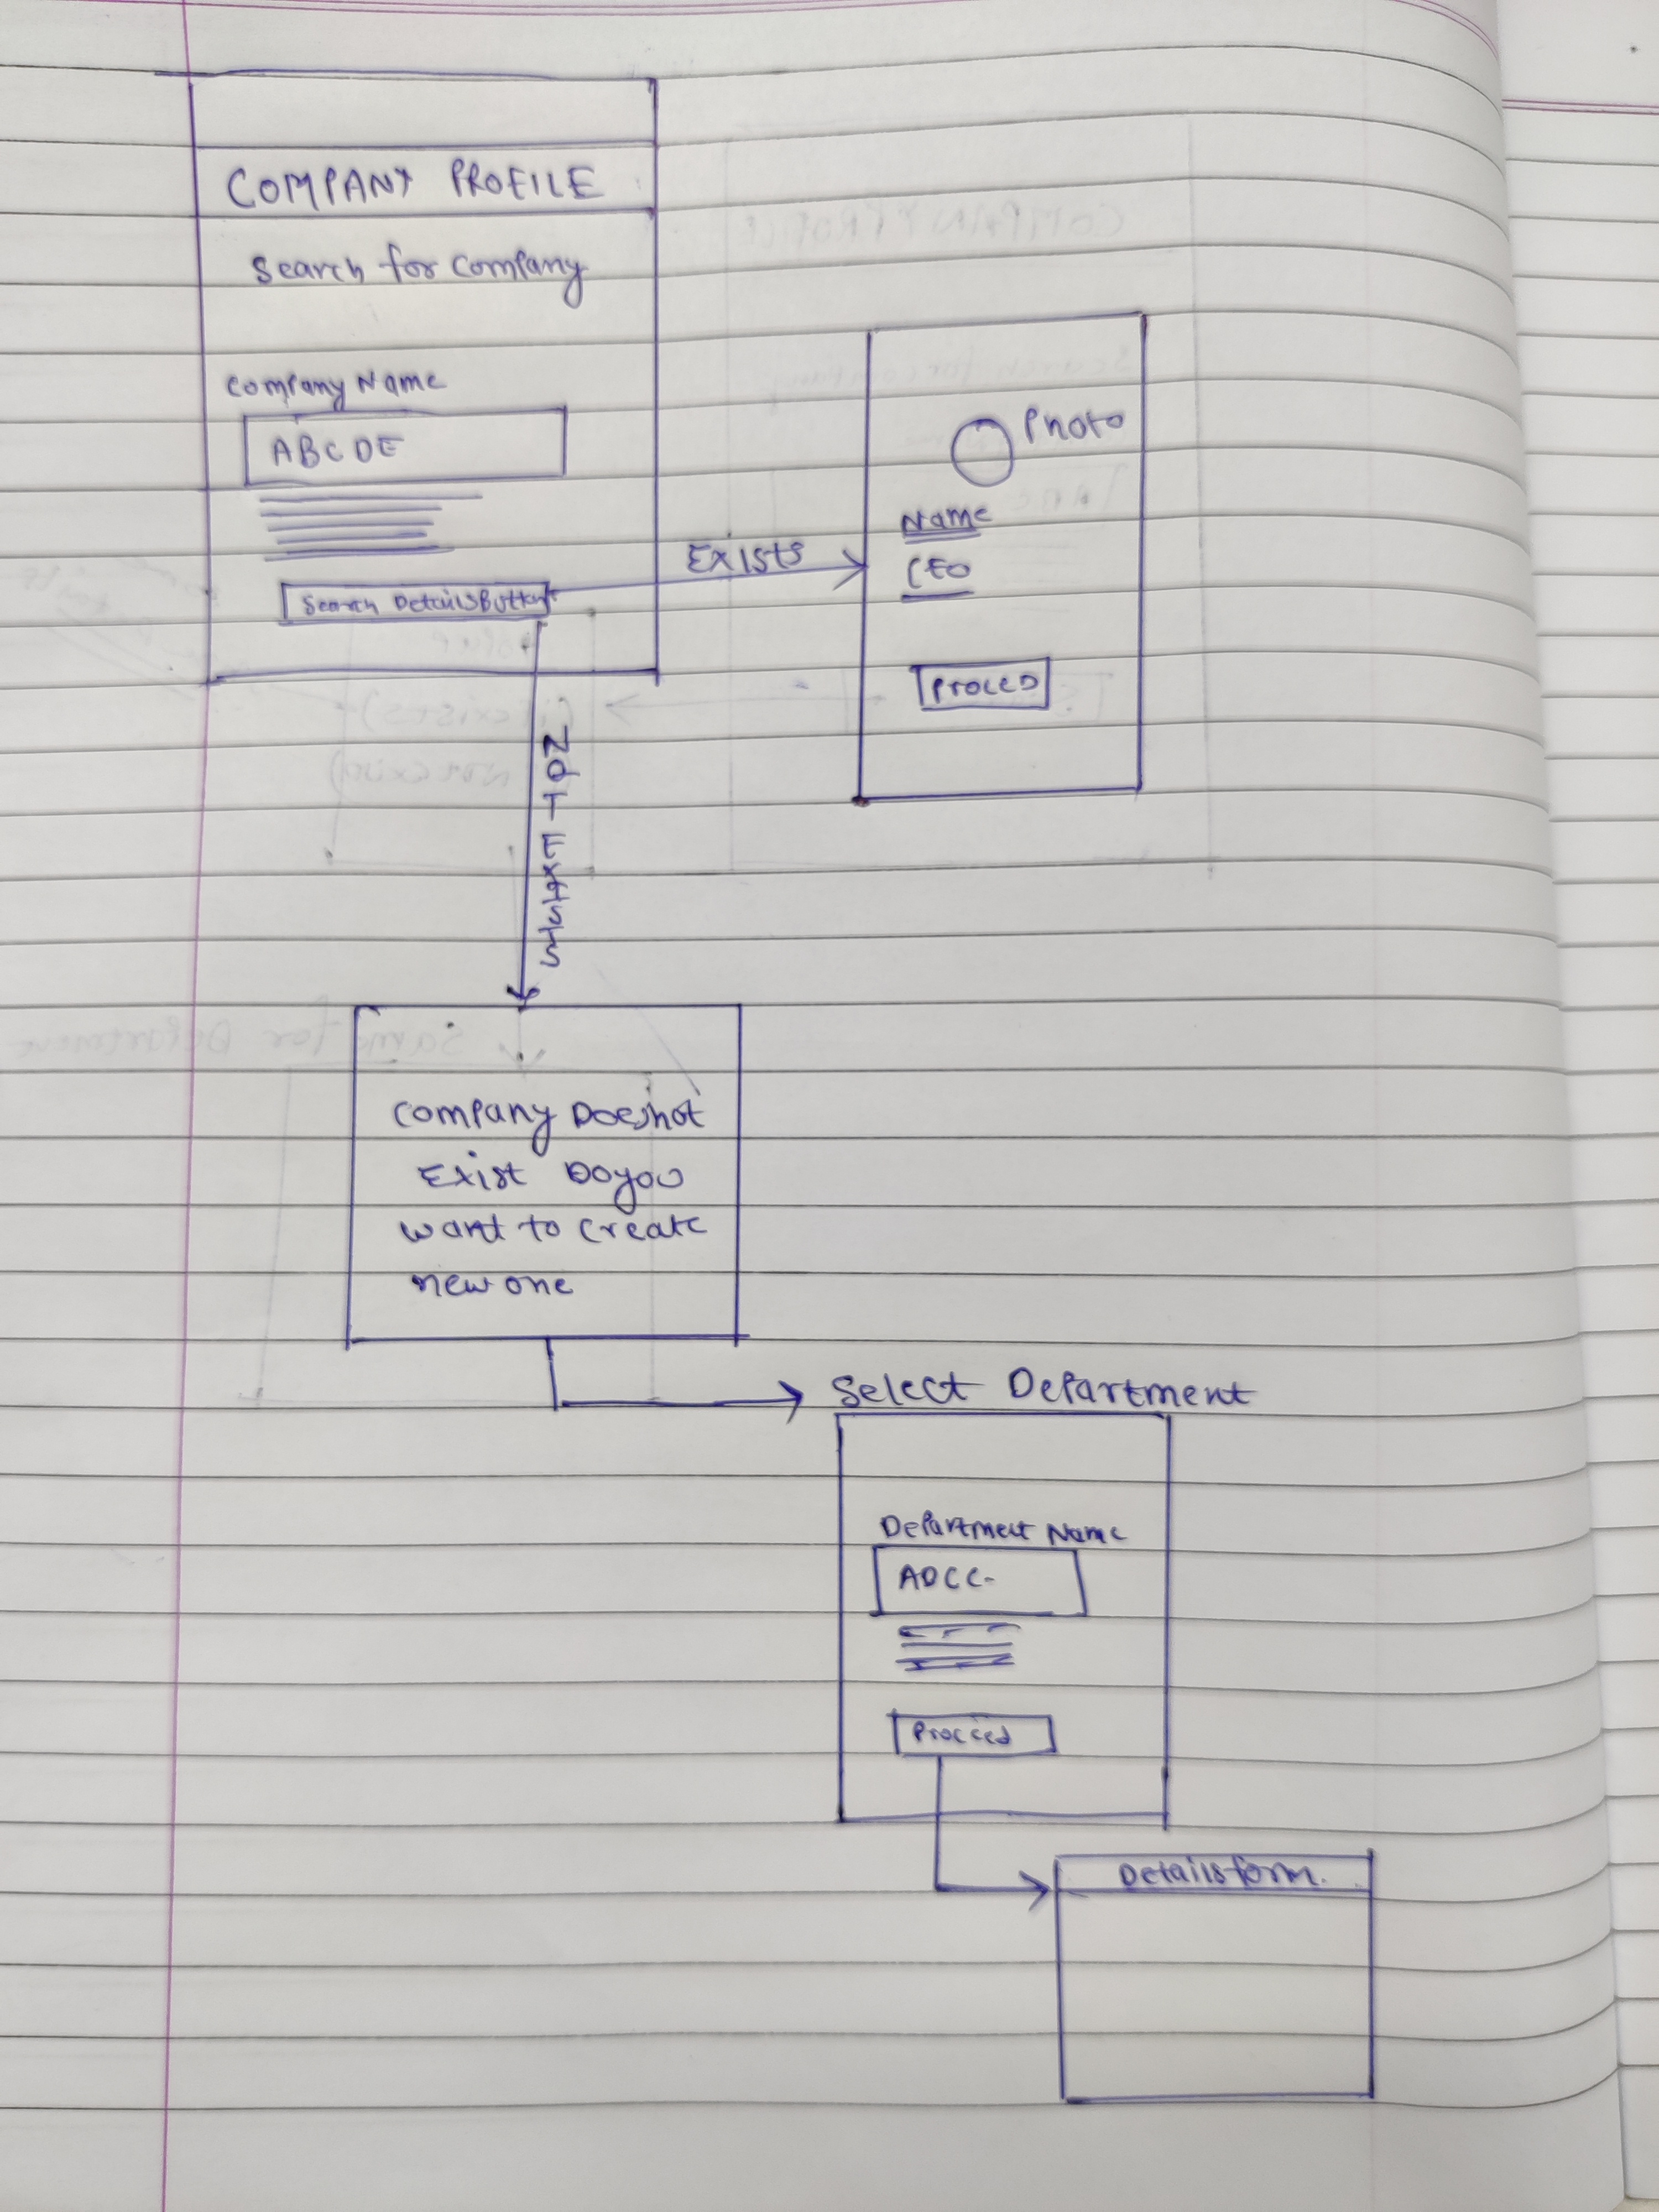 COMPANY PROFILE
Search for Company
Company Name
ABCDE
Search Details Button
Exists
Photo
Name
CEO
Proceed
Not-Exists
Company Does not
Exist Do you
want to create
new one
Select Department
Department Name
ADCC-
Proceed
Details form.